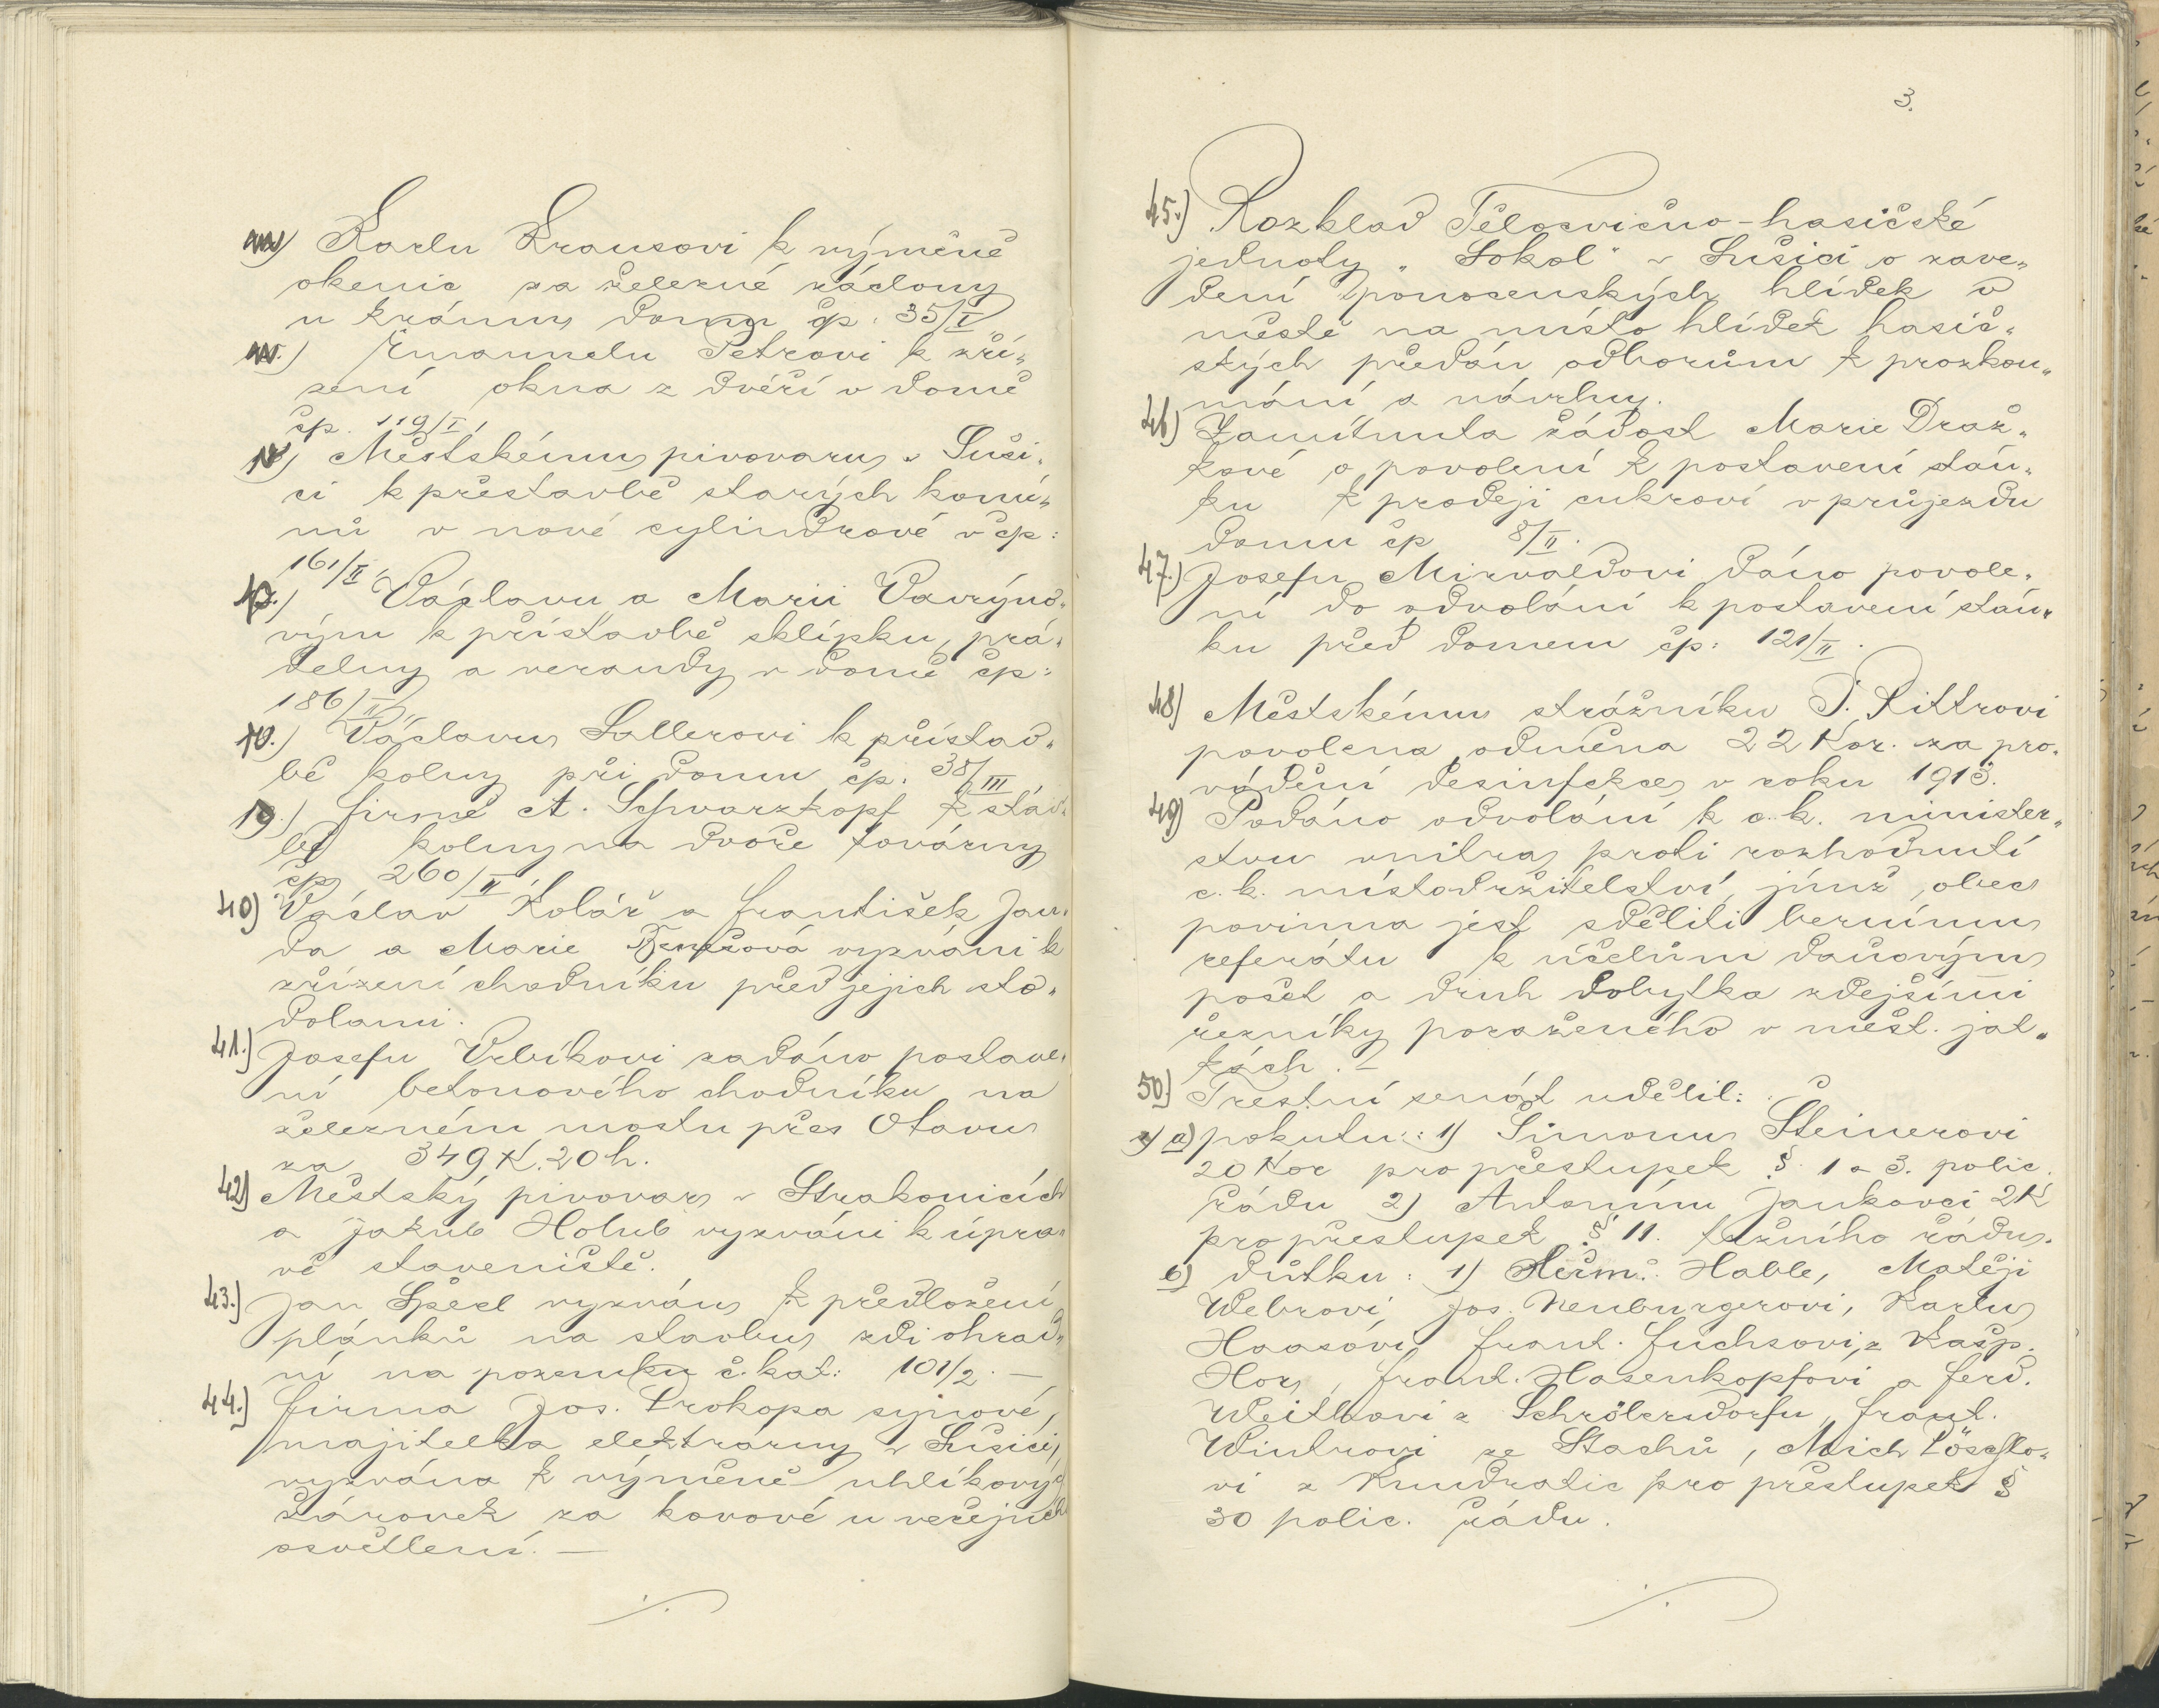 Karlu Krausovi k výměně
okenic za železné záclony
u krámu domu čp. 35/I
Emanuelu Petrovi k zří„
zení okna z dvěří v domě
čp. 119/I,
Městskému pivovaru v Suši„
ci k přestavbě starých komí„
nů v nové cylindrové v čp:
161/II,
Václavu a Marii Vavrýno„
vým k přístavbě sklípku, prá„
delny a verandy v domě čp:
186/II,
Václavu Sallerovi k přístav„
bě kolny při domu čp. 38/III
firmě A. Schwarzkopf k stav„
bě kolny na dvoře továrny
čp 260/II,
40) Václav Kolář a František Jan„
da a Marie vyzváni k
zřízení chodníku před jejich sto„
dolami.
41.) Josefu Vrbíkovi zadáno postave„
ní betonového chodníku na
železném mostu přes Otavu
za 349 K. 20 h.
42) Městský pivovar v Strakonicích
a Jakub Holub vyzváni k úpra„
vě staveniště.
43.) Jan Špécl vyzván k předložení
plánků na stavbu zdi ohrad„
ní na pozemku č. kat: 101/2. —
44.) Firma Jos. Prokopa synové,
majitelka elektrárny v Sušici,
vyzvána k výměně uhlíkových
žárovek za kovové u veřejného
osvětlení. —
3.
45.) Rozklad Tělocvičně-hasičské
jednoty „Sokol“ v Sušici o zave„
dení ponocenských hlídek v
městě na místo hlídek hasič„
ských předán odborům k prozkou„
mání a návrhu.
46) Zamítnuta žádost Marie Draž„
kové o povolení k postavení stán„
ku k prodeji cukroví v průjezdu
domu čp 8/II.
47.) Josefu Mirvaldovi dáno povole„
ní do odvolání k postavení stán„
ku před domem čp: 121/II.
48) Městskému strážníku P. Rittrovi
povolena odměna 22 Kor. za pro„
vádění desinfekce v roku 1913.
49) Podáno odvolání k c. k. minister„
stvu vnitra proti rozhodnutí
c. k. místodržitelství, jímž obec
povinna jest sděliti bernímu
referátu k účelům daňovým
počet a druh dobytka zdejšími
řezníky poraženého v měst. jat„
kách. —
50.) Trestní senát udělil:
a) pokutu: 1) Šimonu Steinerovi
20 Kor pro přestupek §. 1 a 3. polic.
řádu 2) Antonínu Jankovci 2 K
pro přestupek § 11. tržního řádu.
b) důtku: 1) Heřm. Hable, Matěji
Webrovi, Jos. Neuburgerovi, Karlu
Haasovi, Frant. Fuchsovi, z Kašp.
Hor, Frant. Hasenkopfovi a Ferd.
Weithovi z Schröbersdorfu, Frant.
Wintrovi ze Stachů, Mich Pöschlo„
vi z Kundratic pro přestupek §
30 polic. řádu.